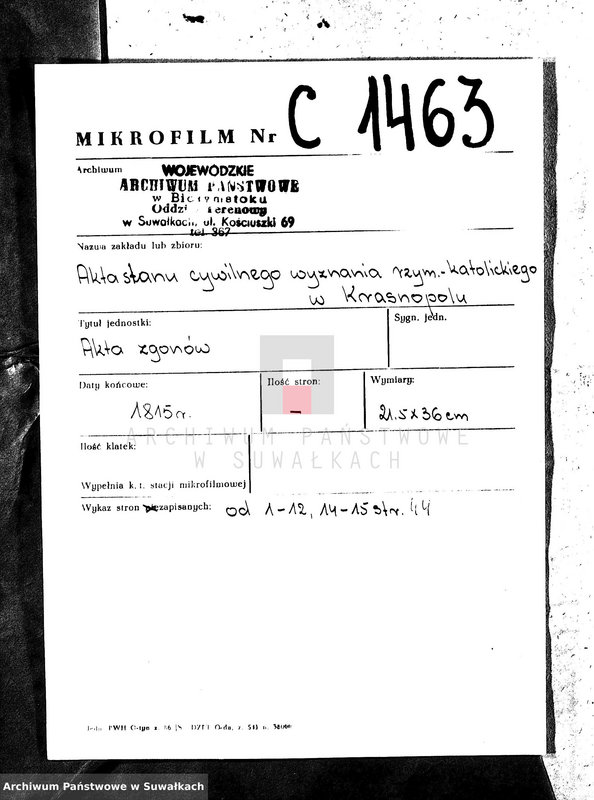 MIKROFILM Nr C 1463
Archiwum
WOJEWÓDZKIE
ARCHIWUM PAŃSTWOWE
w Białymstoku
Oddział Terenowy
w Suwałkach, ul. Kościuszki 69
tel 367
Nazwa zakładu lub zbioru:
Akta stanu cywilnego wyznania rzym.-katolickiego
w Krasnopolu
Tytuł jednostki:
Sygn. jedn.
Akta zgonów
Daty końcowe:
Ilość stron:
Wymiary:
1815 r.
—
21.5 x 36 cm
ARCHIWUM PAŃSTWOWE
W SUWAŁKACH
Ilość klatek:
Wypełnia k. t. stacji mikrofilmowej
Wykaz stron zapisanych: od 1-12, 14-15 str. 44
Archiwum Państwowe w Suwałkach